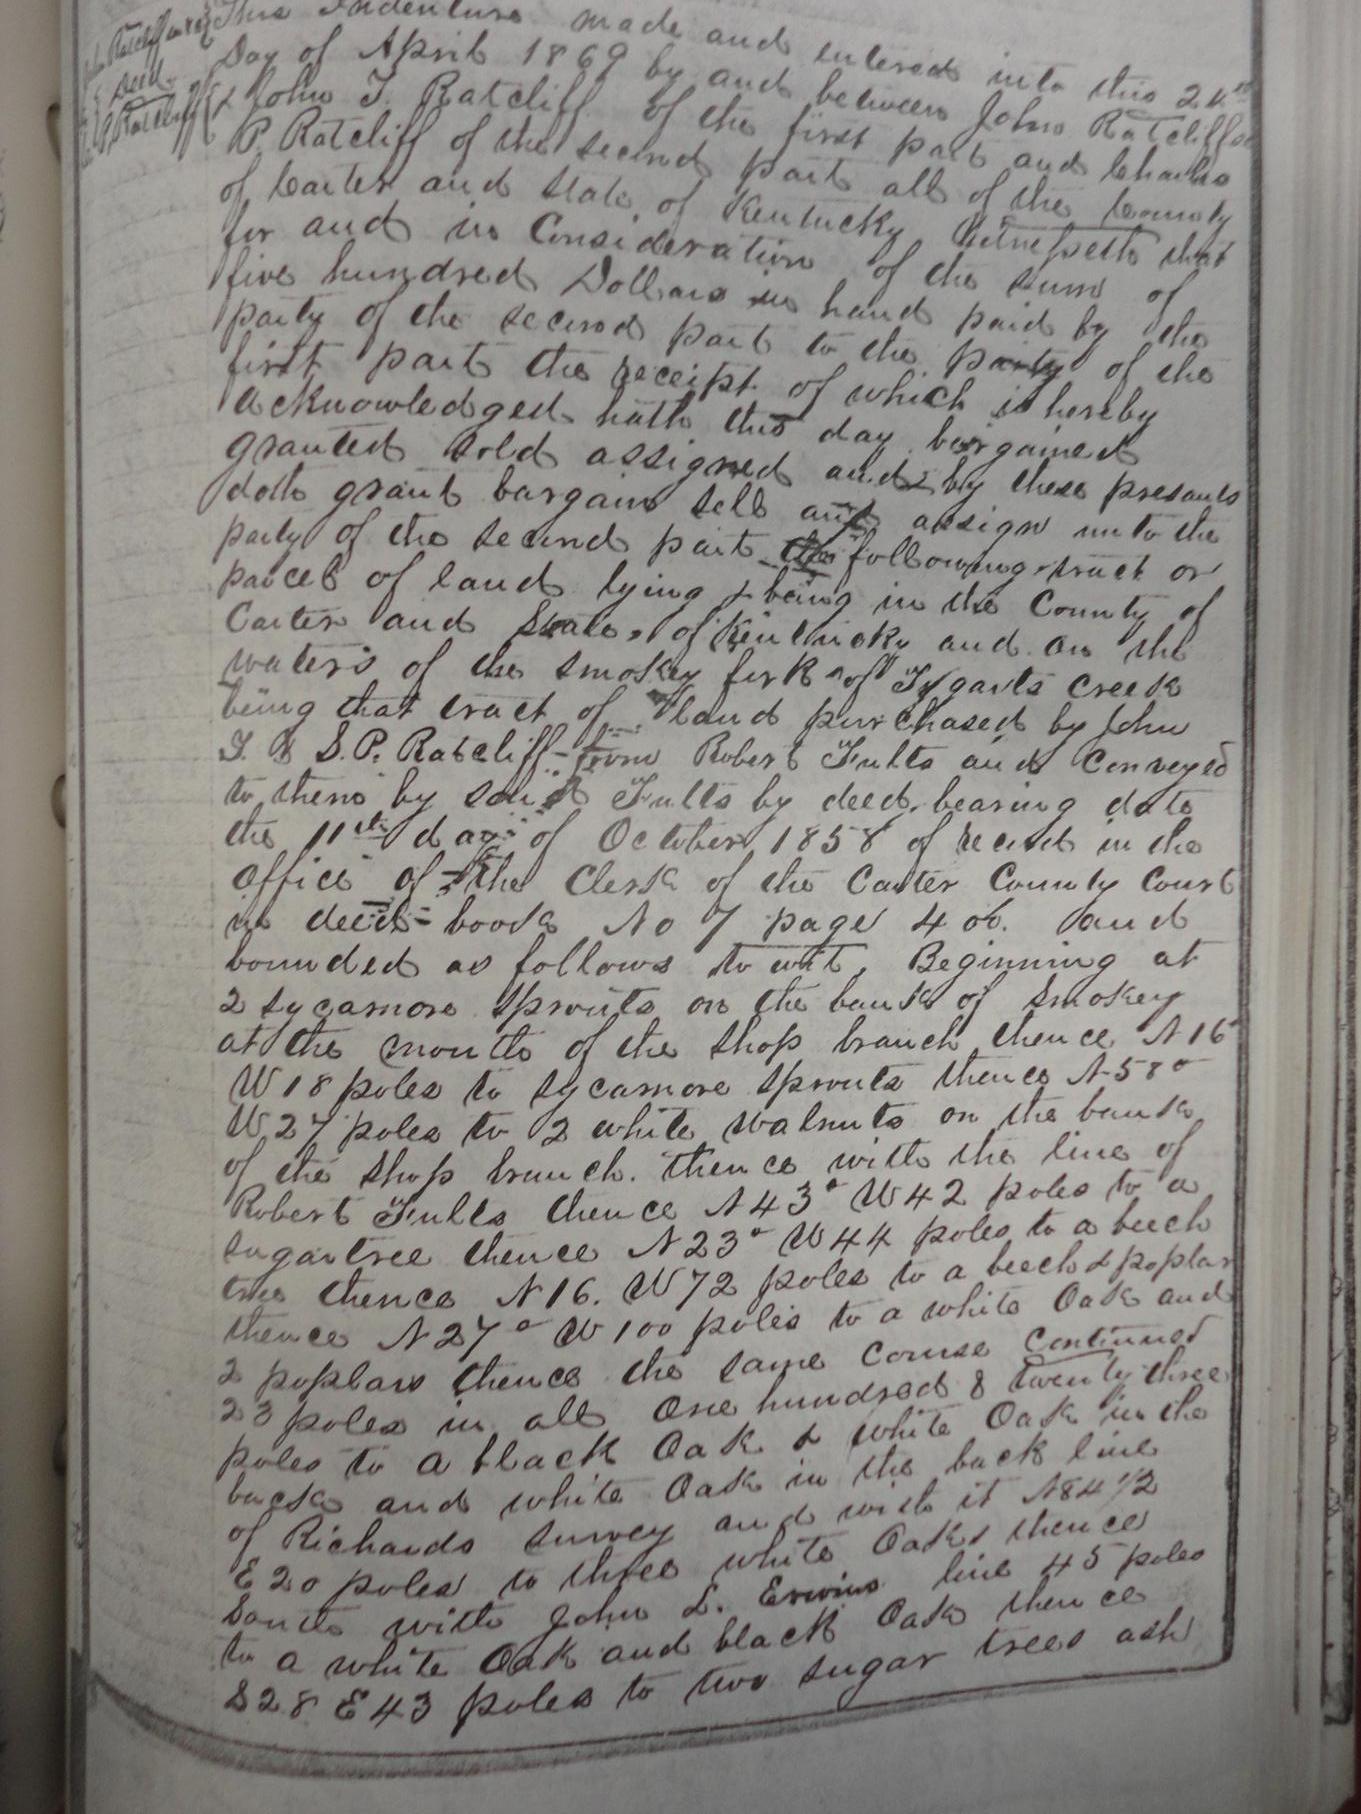 John Ratcliff
Deed
P. Ratcliff
This Indenture made and entered into this
Day of April 1869 by and between John Ratcliff
& John T. Ratcliff of the first part and Charles
P. Ratcliff of the second part all of the County
of Carter and State of Kentucky Witnesseth that
for and in Consideration of the sum of
five hundred Dollars in hand paid by the
party of the second part to the party of the
first part the receipt of which is hereby
acknowledged hath this day bargained
granted sold assigned and by these presants
doth grant bargain sell and assign unto the
party of the second part the following tract or
parcel of land lying & being in the County of
Carter and State of Kentucky and on the
waters of the smokey fork of Tygarts creek
being that tract of land purchased by John
T. & S.P. Ratcliff from Robert Fults and Conveyed
to them by said Fults by deed bearing date
the 11th day of October 1858 of record in the
office of the Clerk of the Carter County Court
in deed book No 7 page 406. and
bounded as follows to wit. Beginning at
2 sycamore sprouts on the bank of smokey
at the mouth of the shop branch thence N16°
W18 poles to sycamore sprouts thence N58°
W27 poles to 2 white walnuts on the bank
of the shop branch. thence with the line of
Robert Fults thence N43° W42 poles to a
sugartree thence N23° W44 poles to a beech
tree thence N16. W72 poles to a beech & poplar
thence N27° W100 poles to a white Oak and
2 poplars thence the same course continued
23 poles in all One hundred & twenty three
poles to a black Oak & white Oak in the
back and white Oak in the back line
of Richards survey and with it N84 1/2
E20 poles to three white Oaks thence
South with John L. Erwins line 45 poles
to a white Oak and black Oak thence
S28 E43 poles to two sugar trees ash